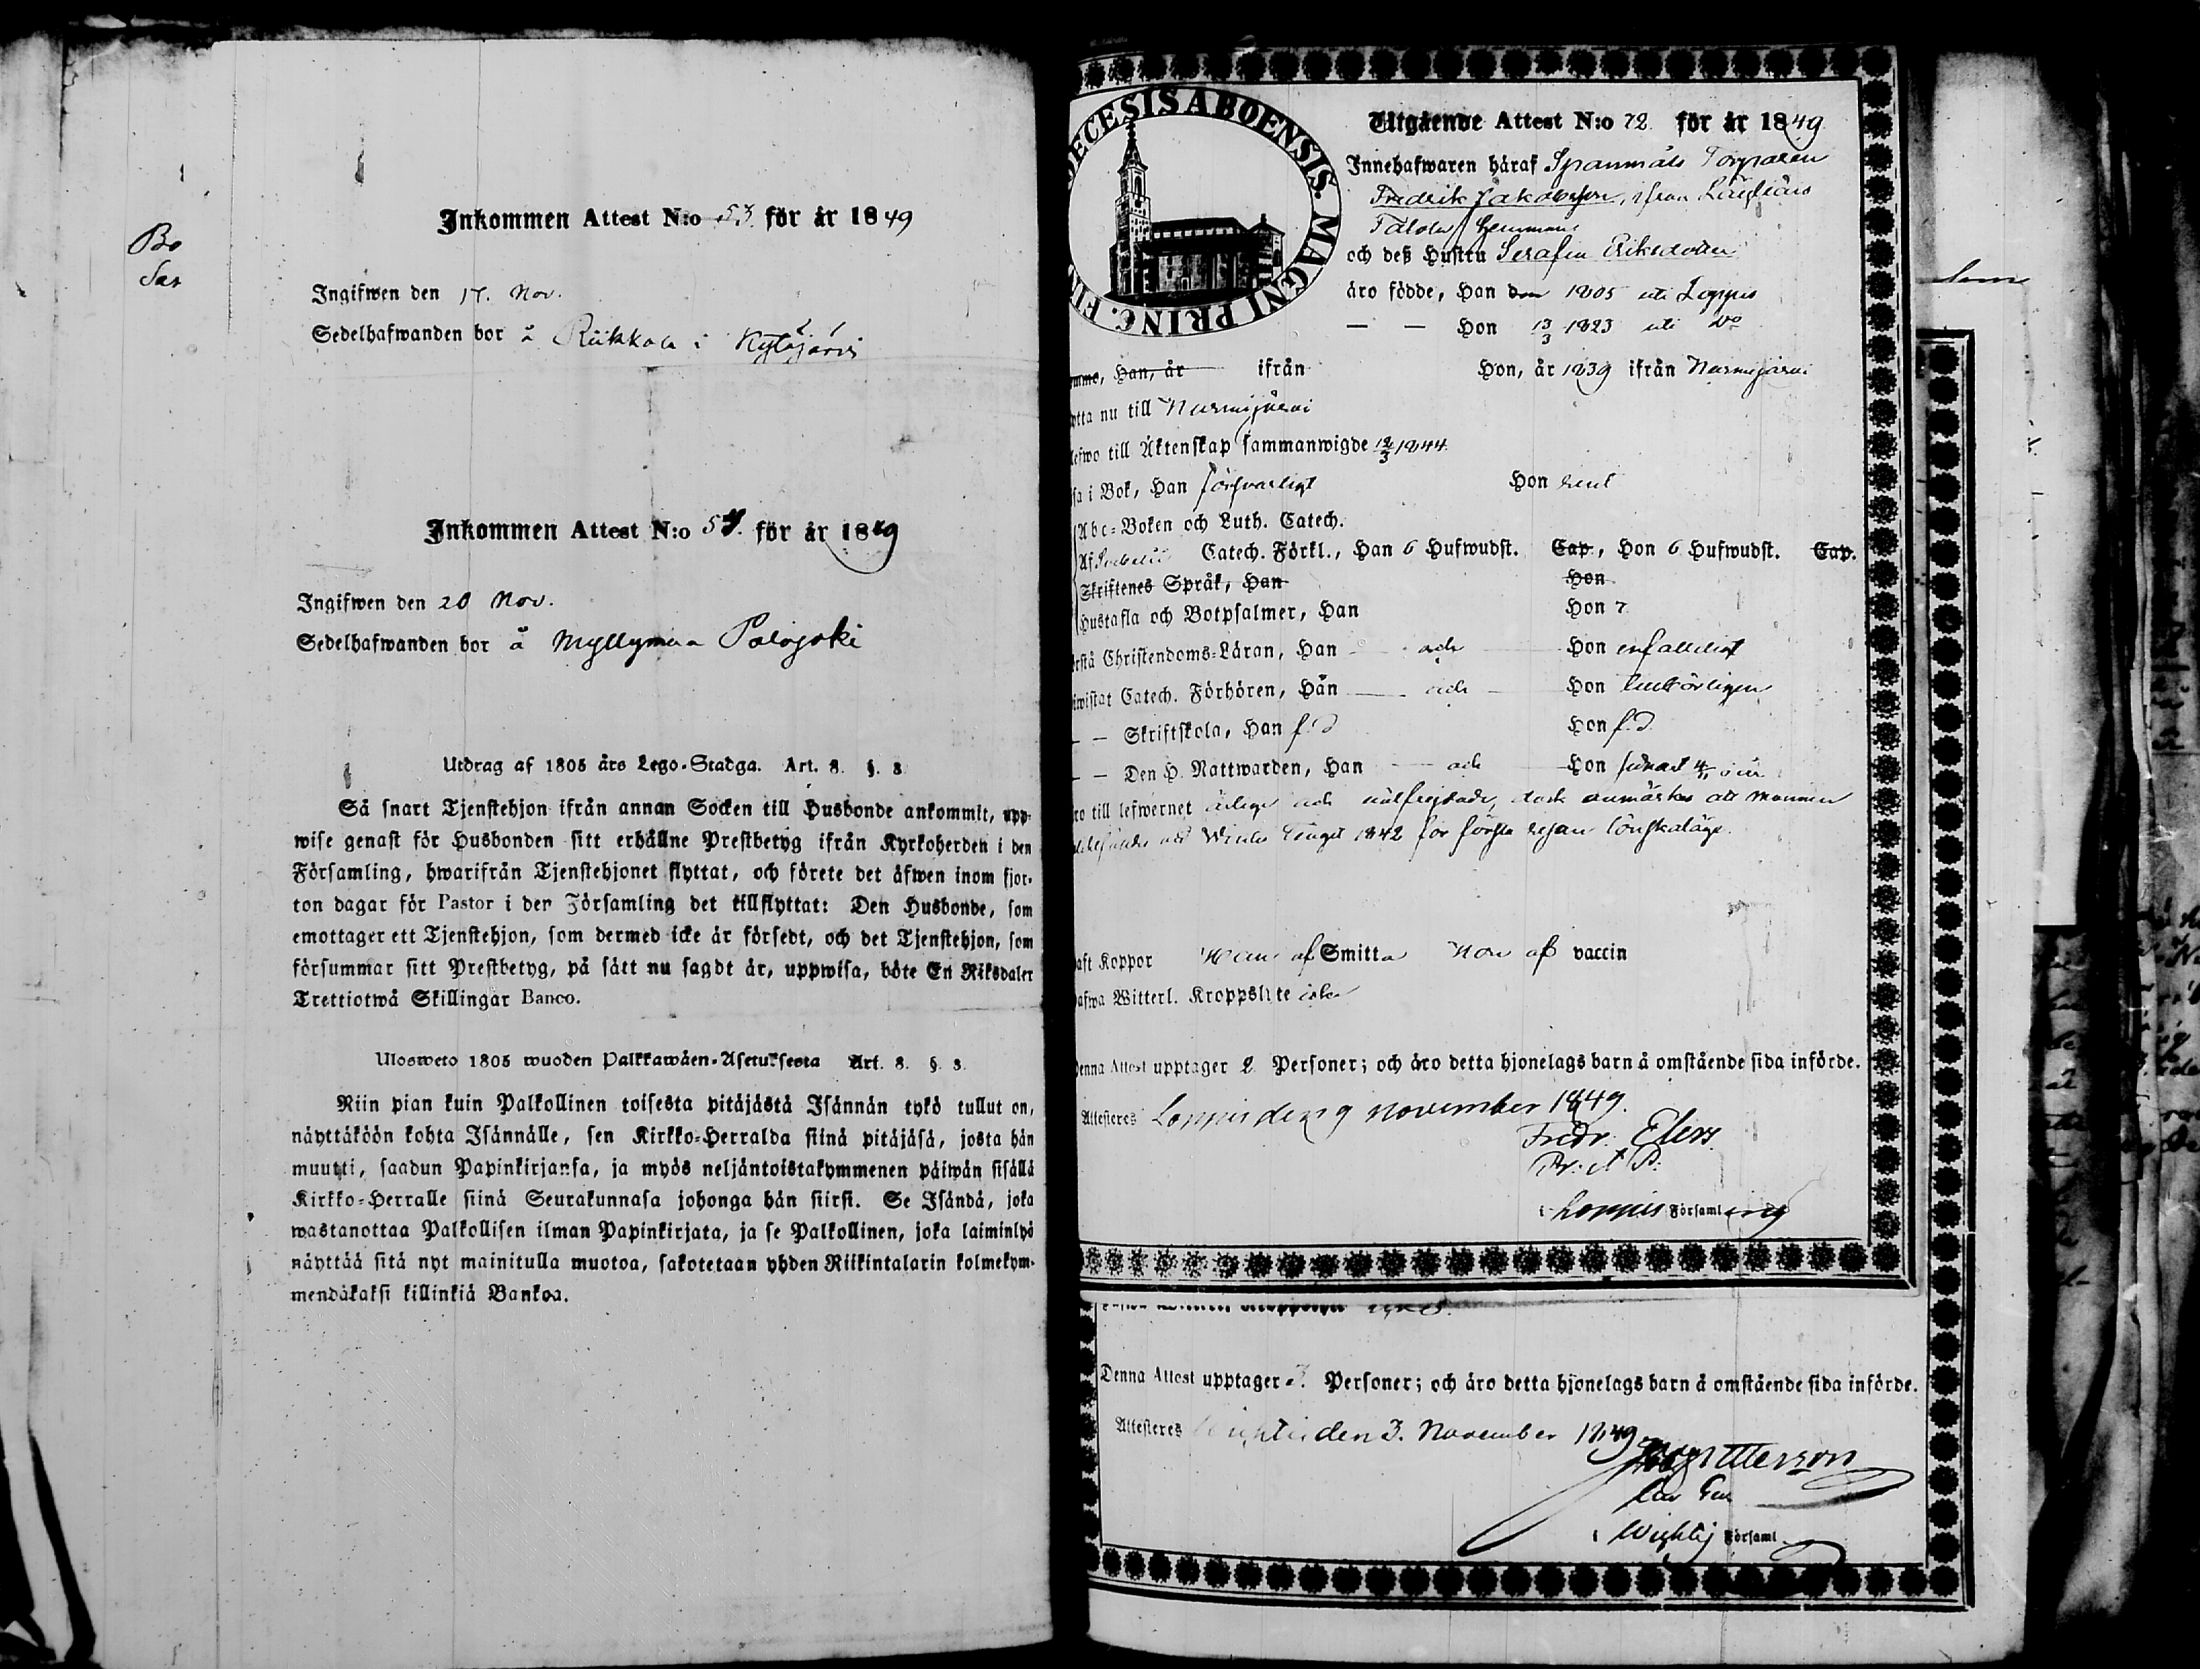 Bo
Sar
Inkommen Attest N:o 53 för år 1849
Ingifwen den 17. Nov.
Sedelhafwanden bor å Riikkala i Kytäjärvi
Inkommen Attest N:o 54. för år 1849
Ingifwen den 20 Nov.
Sedelhafwanden bor å Myllymaa Palojoki
Utdrag af 1805 års Lego-Stadga. Art. 8. §. 8
Så snart Tjenstehjon ifrån annan Socken till Husbonde ankommit, upp-
wise genast för Husbonden sitt erhållne Prestbetyg ifrån Kyrkoherden i den
Församling, hwarifrån Tjenstehjonet flyttat, och förete det äfwen inom fjor-
ton dagar för Pastor i den Församling det tillflyttat: Den Husbonde, som
emottager ett Tjenstehjon, som dermed icke är försedt, och det Tjenstehjon, som
försummar sitt Prestbetyg, på sätt nu sagdt är, uppwisa, böte En Riksdaler
Trettiotwå Skillingar Banco.
Ulosweto 1805 wuoden Palkkawäen-Asetuksesta Art. 8. §. 8.
Niin pian kuin Palkollinen toisesta pitäjästä Isännän tykö tullut on,
näyttäköön kohta Isännälle, sen Kirkko-Herralda siinä pitäjäsä, josta hän
muutti, saadun Papinkirjansa, ja myös neljäntoistakymmenen päiwän sisällä
Kirkko-Herralle siinä Seurakunnasa johonga hän siirsi. Se Isändä, joka
wastanottaa Palkollisen ilman Papinkirjata, ja se Palkollinen, joka laiminlyö
näyttää sitä nyt mainitulla muotoa, sakotetaan yhden Riikintalarin kolmekym-
mendäkaksi killinkiä Bankoa.
DECESIS ABOENSIS. MAGNI PRINC. FIN
Utgående Attest N:o 72 för år 1849
Innehafwaren häraf Spanmåls Torparen
Fredrik Jakobsson, ifrån
Talola Hemman
och deß Hustru Serafia Eriksdotter
äro födde, Han den 1805 uti Loppis
— — Hon 13/3 1823 uti Do
mmo, Han, år ifrån Hon, år 1839 ifrån Nurmijärvi
ytta nu till Nurmijärvi
lefwo till Äktenskap sammanwigde 12/3 1844.
sa i Bok, Han försvarligt Hon rent
Abc-Boken och Luth. Catech.
Af Svebelii Catech. Förkl., Han 6 Hufwudst. Cap., Hon 6 Hufwudst. Cap.
Skriftenes Språk, Han Hon
Hustafla och Botpsalmer, Han Hon 7
rstå Christendoms-Läran, Han — och — Hon enfalldigt
iwistat Catech. Förhören, Han — och — Hon
— — Skriftskola, Han f. d. Hon f. d.
— — Den H. Nattwarden, Han — och — Hon senast
ro till lefwernet ärlige och välfrejdade, dock anmärkes att Mannen
vid Winter Tinget 1842 för första resan lönskaläge.
aft Koppor Han af Smitta Hon af vaccin
afwa Witterl. Kroppslyte icke
Denna Attest upptager 2 Personer; och äro detta hjonelags barn å omstående sida införde.
Attesteres Loppis den 9 November 1849.
Fredr. Elers.
i Loppis Församling
Denna Attest upptager 3. Personer; och äro detta hjonelags barn å omstående sida införde.
Attesteres Wichtis den 3. November 1849
i Wichtis Församl